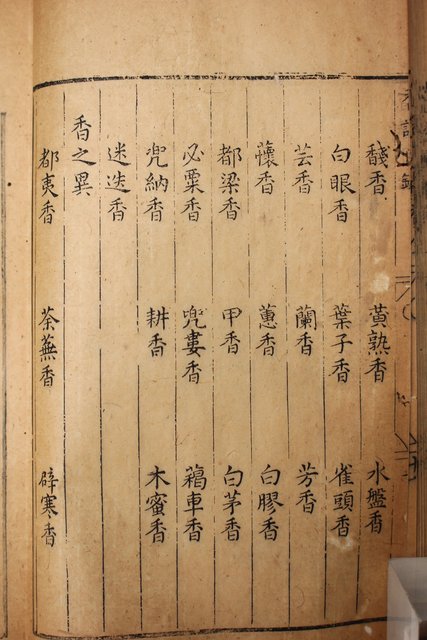 馢香 黃熟香 水盤香
白眼香 葉子香 雀頭香
芸香 蘭香 芳香
蘹香 蕙香 白膠香
都梁香 甲香 白茅香
必栗香 兜婁香 藒車香
兜納香 耕香 木蜜香
迷迭香
香之異
都夷香 荼蕪香 辟寒香